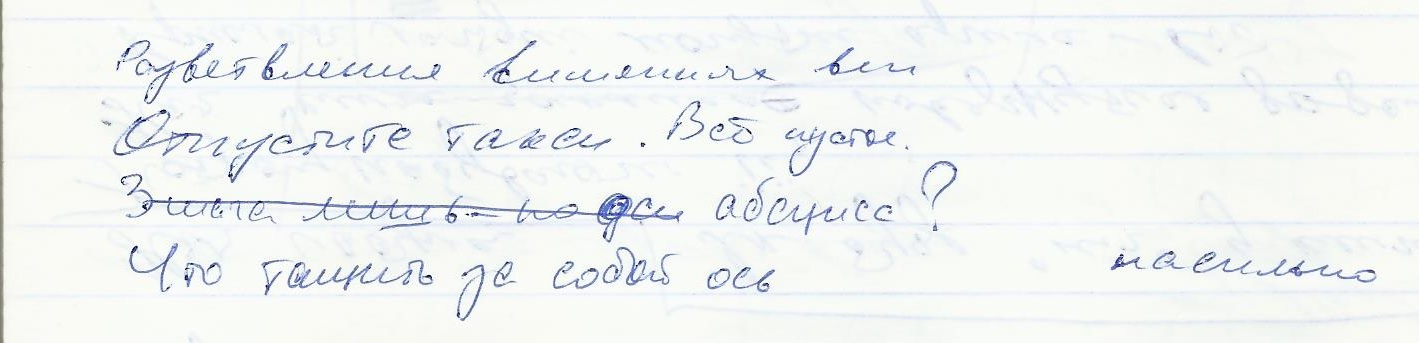 Разветвления вен
Отпустите такси. Всё пустое.
лишь по оси абсцисс?
Что тащить за собой ось насильно